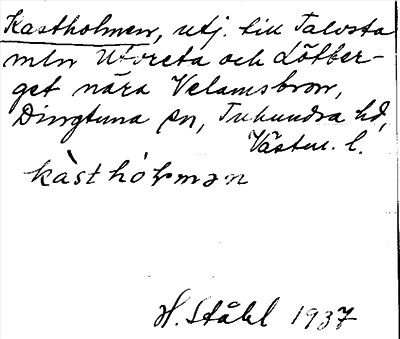 Kastholmen, utj. till Talosta
mln Utveta och Lötber-
get nära Velamsbron,
Dingtuna sn, Tuhundra hd,
Västm. l.
kàsthólmən
H. Ståhl 1937